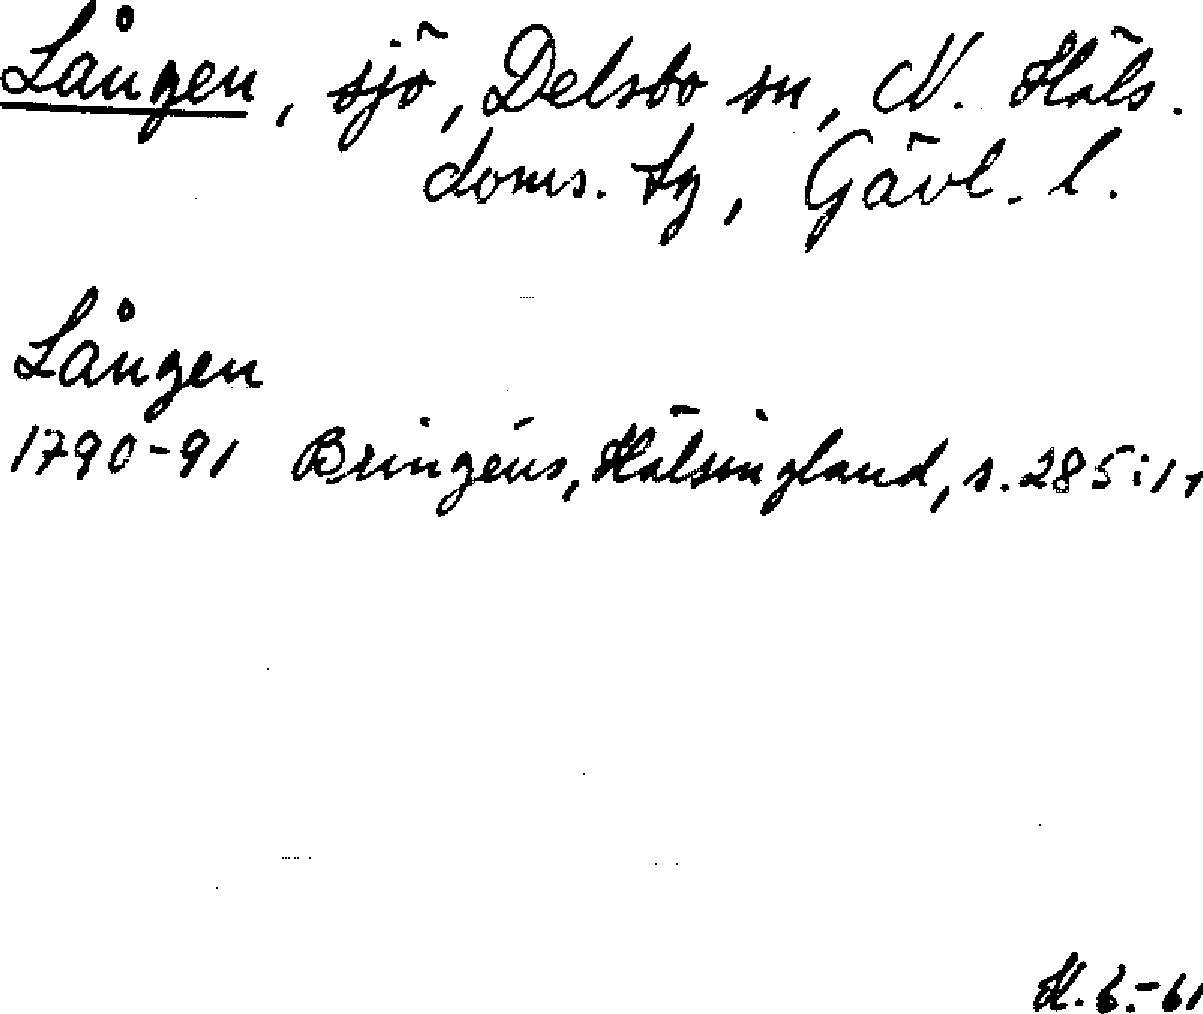 Lången, sjö, Delsbo sn, N. Häls.
doms. tg, Gävl. l.
Lången
1790-91 Bringéus, Hälsingland, s. 285:1,
H. 6.-61